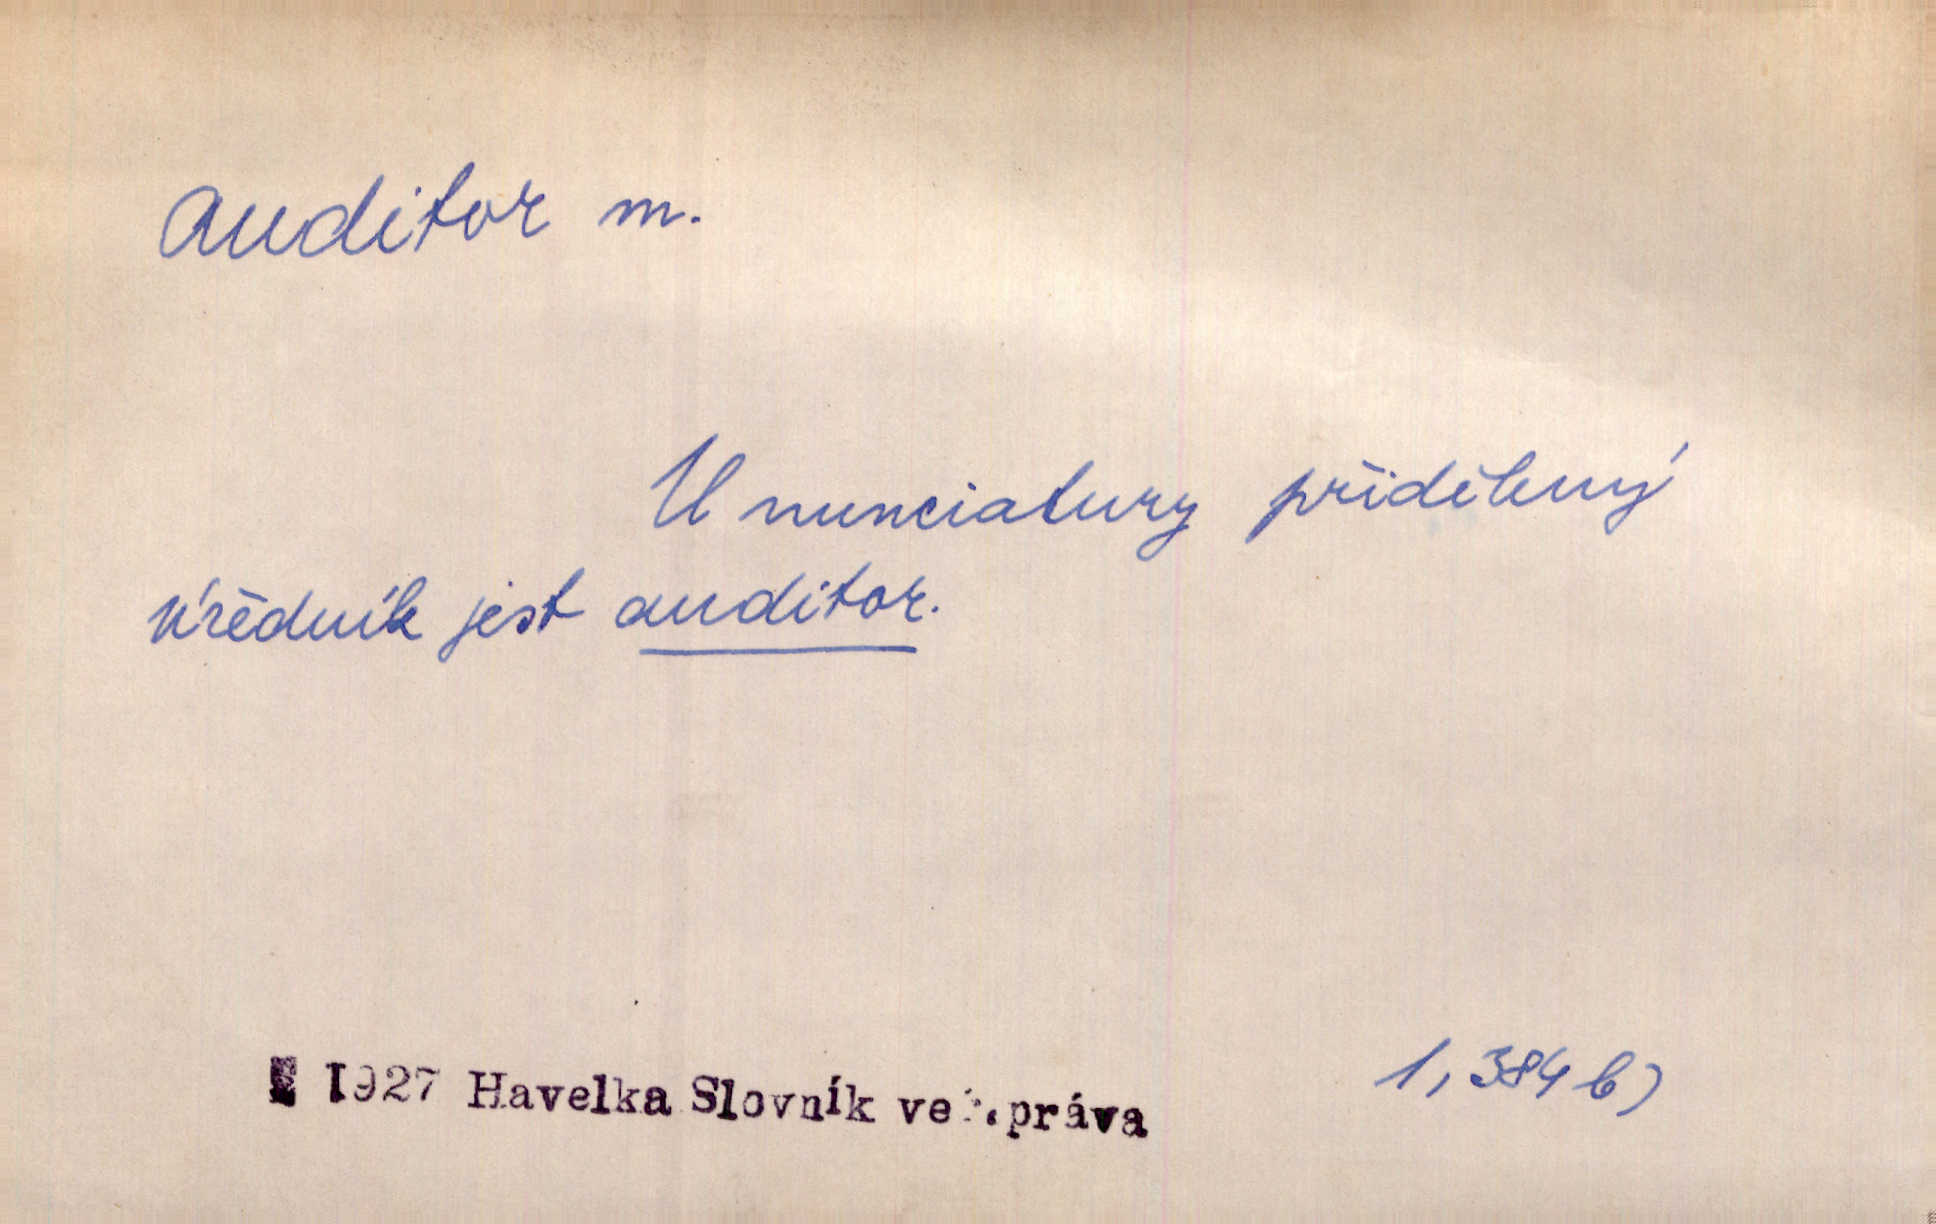 auditor m.
U nunciatury přidělený
úředník jest auditor.
1927 Havelka Slovník veř. práva
1, 384 b)